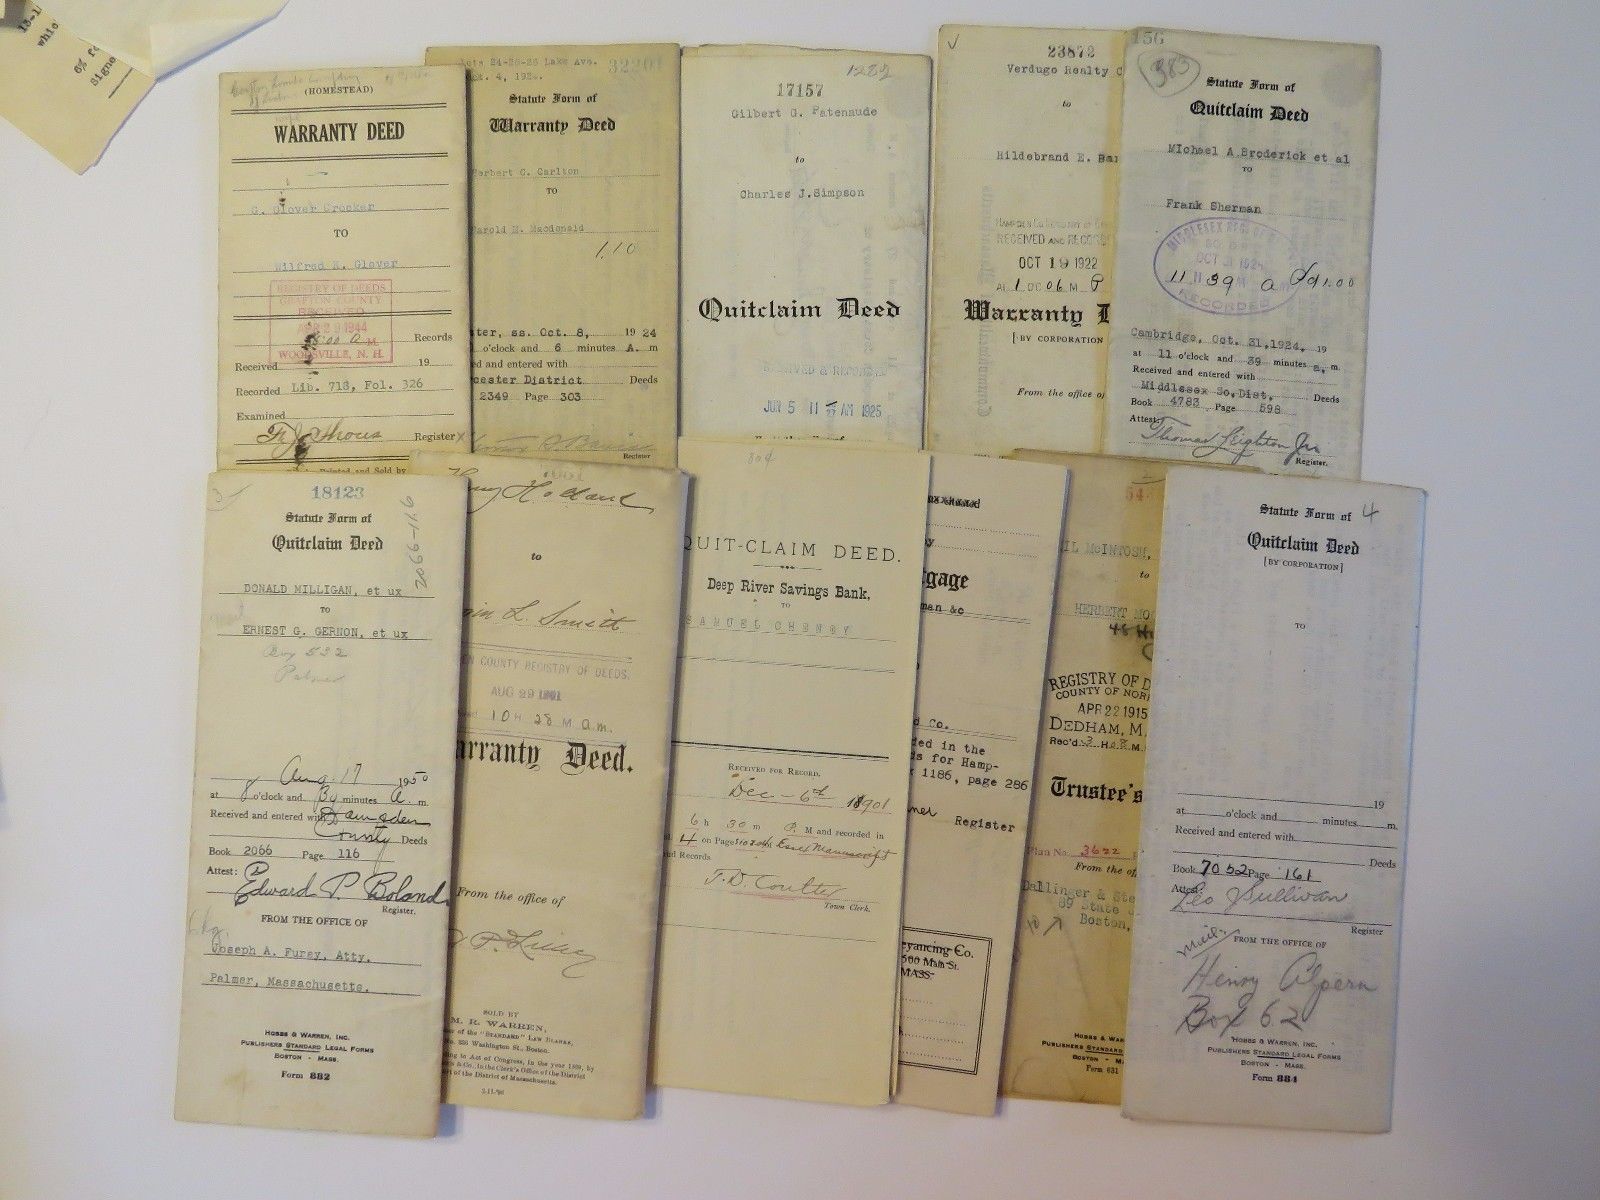 (HOMESTEAD)
WARRANTY DEED
G. Glover Crocker
TO
Wilfred R. Glover
REGISTRY OF DEEDS
GRAFTON COUNTY
RECEIVED
APR 29 1944
8:00 A M.
WOODSVILLE, N. H.
Records
Received 19
Recorded Lib. 718, Fol. 326
Examined
Register
Printed and Sold by
24-26-26 Lake Ave.
4, 192
32201
Statute Form of
Warranty Deed
Herbert C. Carlton
TO
Harold M. Macdonald
1.10
ter, ss. Oct. 8, 19 24
o'clock and 6 minutes A. m
ed and entered with
cester District Deeds
2349 Page 303
Register
1282
17157
Gilbert G. Patenaude
to
Charles J. Simpson
Quitclaim Deed
RECEIVED & RECORDED
JUN 5 11 AM 1925
23872
Verdugo Realty C
to
Hildebrand E. Bar
RECEIVED AND RECORD
OCT 19 1922
At 1 O'C 06 M P
Warranty D
[BY CORPORATION
From the office o
156
383
Statute Form of
Quitclaim Deed
MIchael A Broderick et al
TO
Frank Sherman
MIDDLESEX REG. OF DEEDS
SO. DIST.
OCT 31 1924
11 39 a
RECORDED
Pd 1.00
Cambridge, Oct. 31,1924. 19
at 11 o'clock and 39 minutes a. m.
Received and entered with
Middlesex So. Dist. Deeds
Book 4783 Page 598
Attest:
Thomas Leighton Jr
Register.
18123
Statute Form of
Quitclaim Deed
2066-116
DONALD MILLIGAN, et ux
TO
ERNEST G. GERNON, et ux
Box 532
Palmer
Aug. 17 1950
at 8 o'clock and minutes A. m.
Received and entered with Hampden
County Deeds
Book 2066 Page 116
Attest:
Edward P. Boland
Register.
FROM THE OFFICE OF
Joseph A. Furey, Atty.
Palmer, Massachusetts.
HOBBS & WARREN, INC.
PUBLISHERS STANDARD LEGAL FORMS
BOSTON - MASS.
Form 882
to
L. Smith
EN COUNTY REGISTRY OF DEEDS.
AUG 29 1901
10 H 28 M a.m.
arranty Deed.
From the office of
SOLD BY
M. R. WARREN,
er of the "STANDARD" LAW BLANKS,
No. 336 Washington St., Boston.
ing to Act of Congress, in the year 1889, by
& Co. in the Clerk's Office of the District
rt of the District of Massachusetts.
804
QUIT-CLAIM DEED.
Deep River Savings Bank,
TO
SAMUEL CHENEY
RECEIVED FOR RECORD.
Dec - 6th 1901
6 h 30 m P. M and recorded in
4 on Page Essex Manuscript
nd Records
J. D. Coulter
Town Clerk.
gage
man &c
d Co.
ded in the
ds for Hamp-
k 1186, page 286
Register
eyancing Co.
500 Main St.
MASS.
54
IL McINTOSH,
to
HERBERT MO
REGISTRY OF D
COUNTY OF NOR
APR 22 1915
DEDHAM, M
Rec'd
Trustee's
Plan No. 3622
From the of
Dallinger & Ste
89 State
Boston,
HOBBS & WAR
PUBLISHERS STAND
BOSTON
Form 631
Statute Form of 4
Quitclaim Deed
[BY CORPORATION]
TO
19
at o'clock and minutes m.
Received and entered with
Deeds
Book 7052 Page 161
Attest:
Leo Sullivan
Register
Mail
FROM THE OFFICE OF
Henry Alpern
Box 62
HOBBS & WARREN, INC.
PUBLISHERS STANDARD LEGAL FORMS
BOSTON - MASS.
Form 884